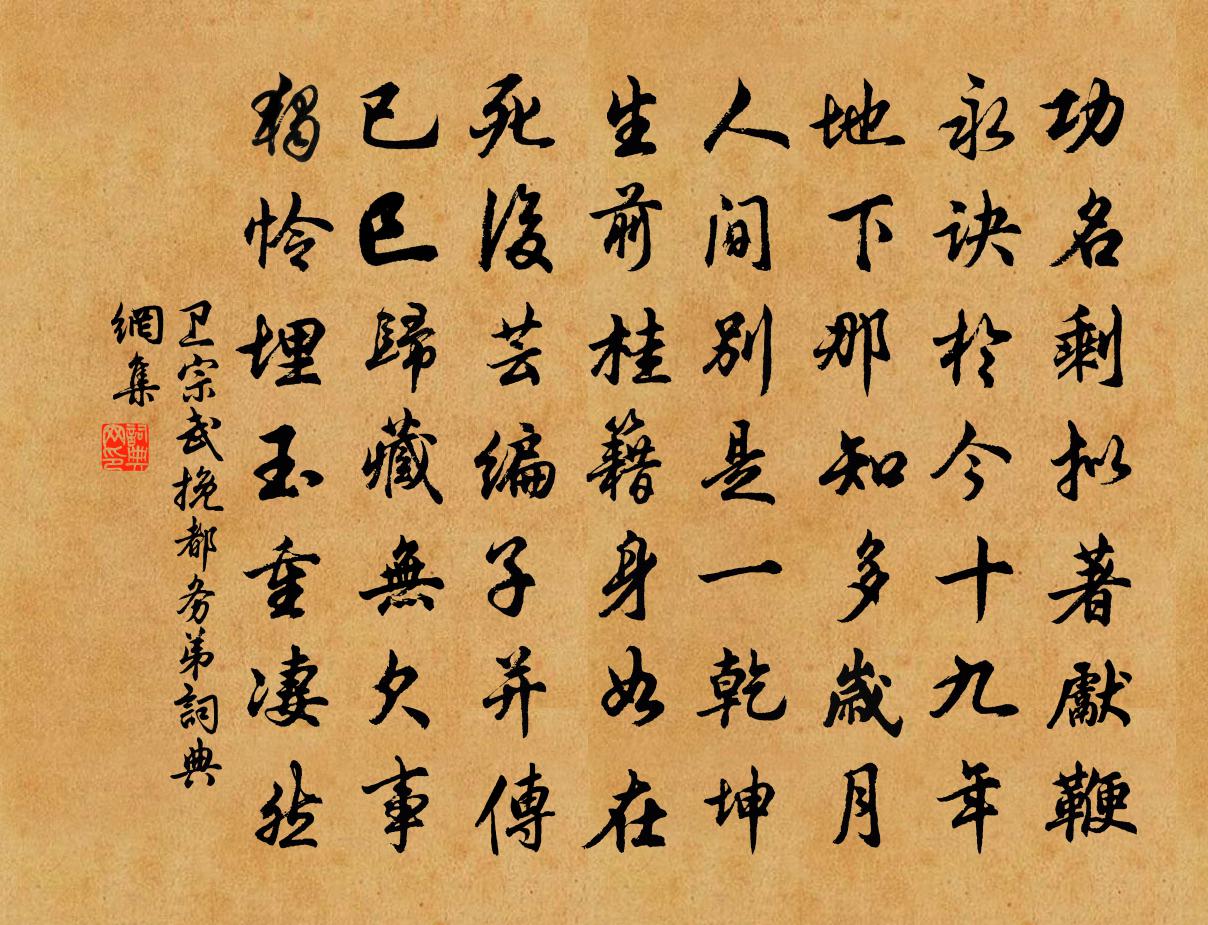 功名剩拟著獻鞭
永诀於今十九年
地下那知多歲月
人间别是一乾坤
生前桂籍身如在
死後芸编子并傳
已巳歸藏無欠事
獨怜埋玉重凄然
卫宗武挽都务弟詞典
網集
詞典网印